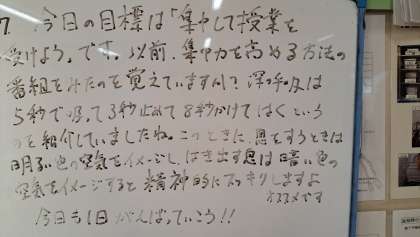 7. 今日の目標は「集中して授業を
受けよう」です。以前、集中力を高める方法の
番組をみたのを覚えていますか？深呼吸は
5秒で吸って3秒止めて8秒かけてはくという
のを紹介していましたね。このときに、息をすうときは
明るい色の空気をイメージし、はき出す息は暗い色の
空気をイメージすると精神的にスッキリしますよ
オススメです
今日も1日がんばっていこう!!